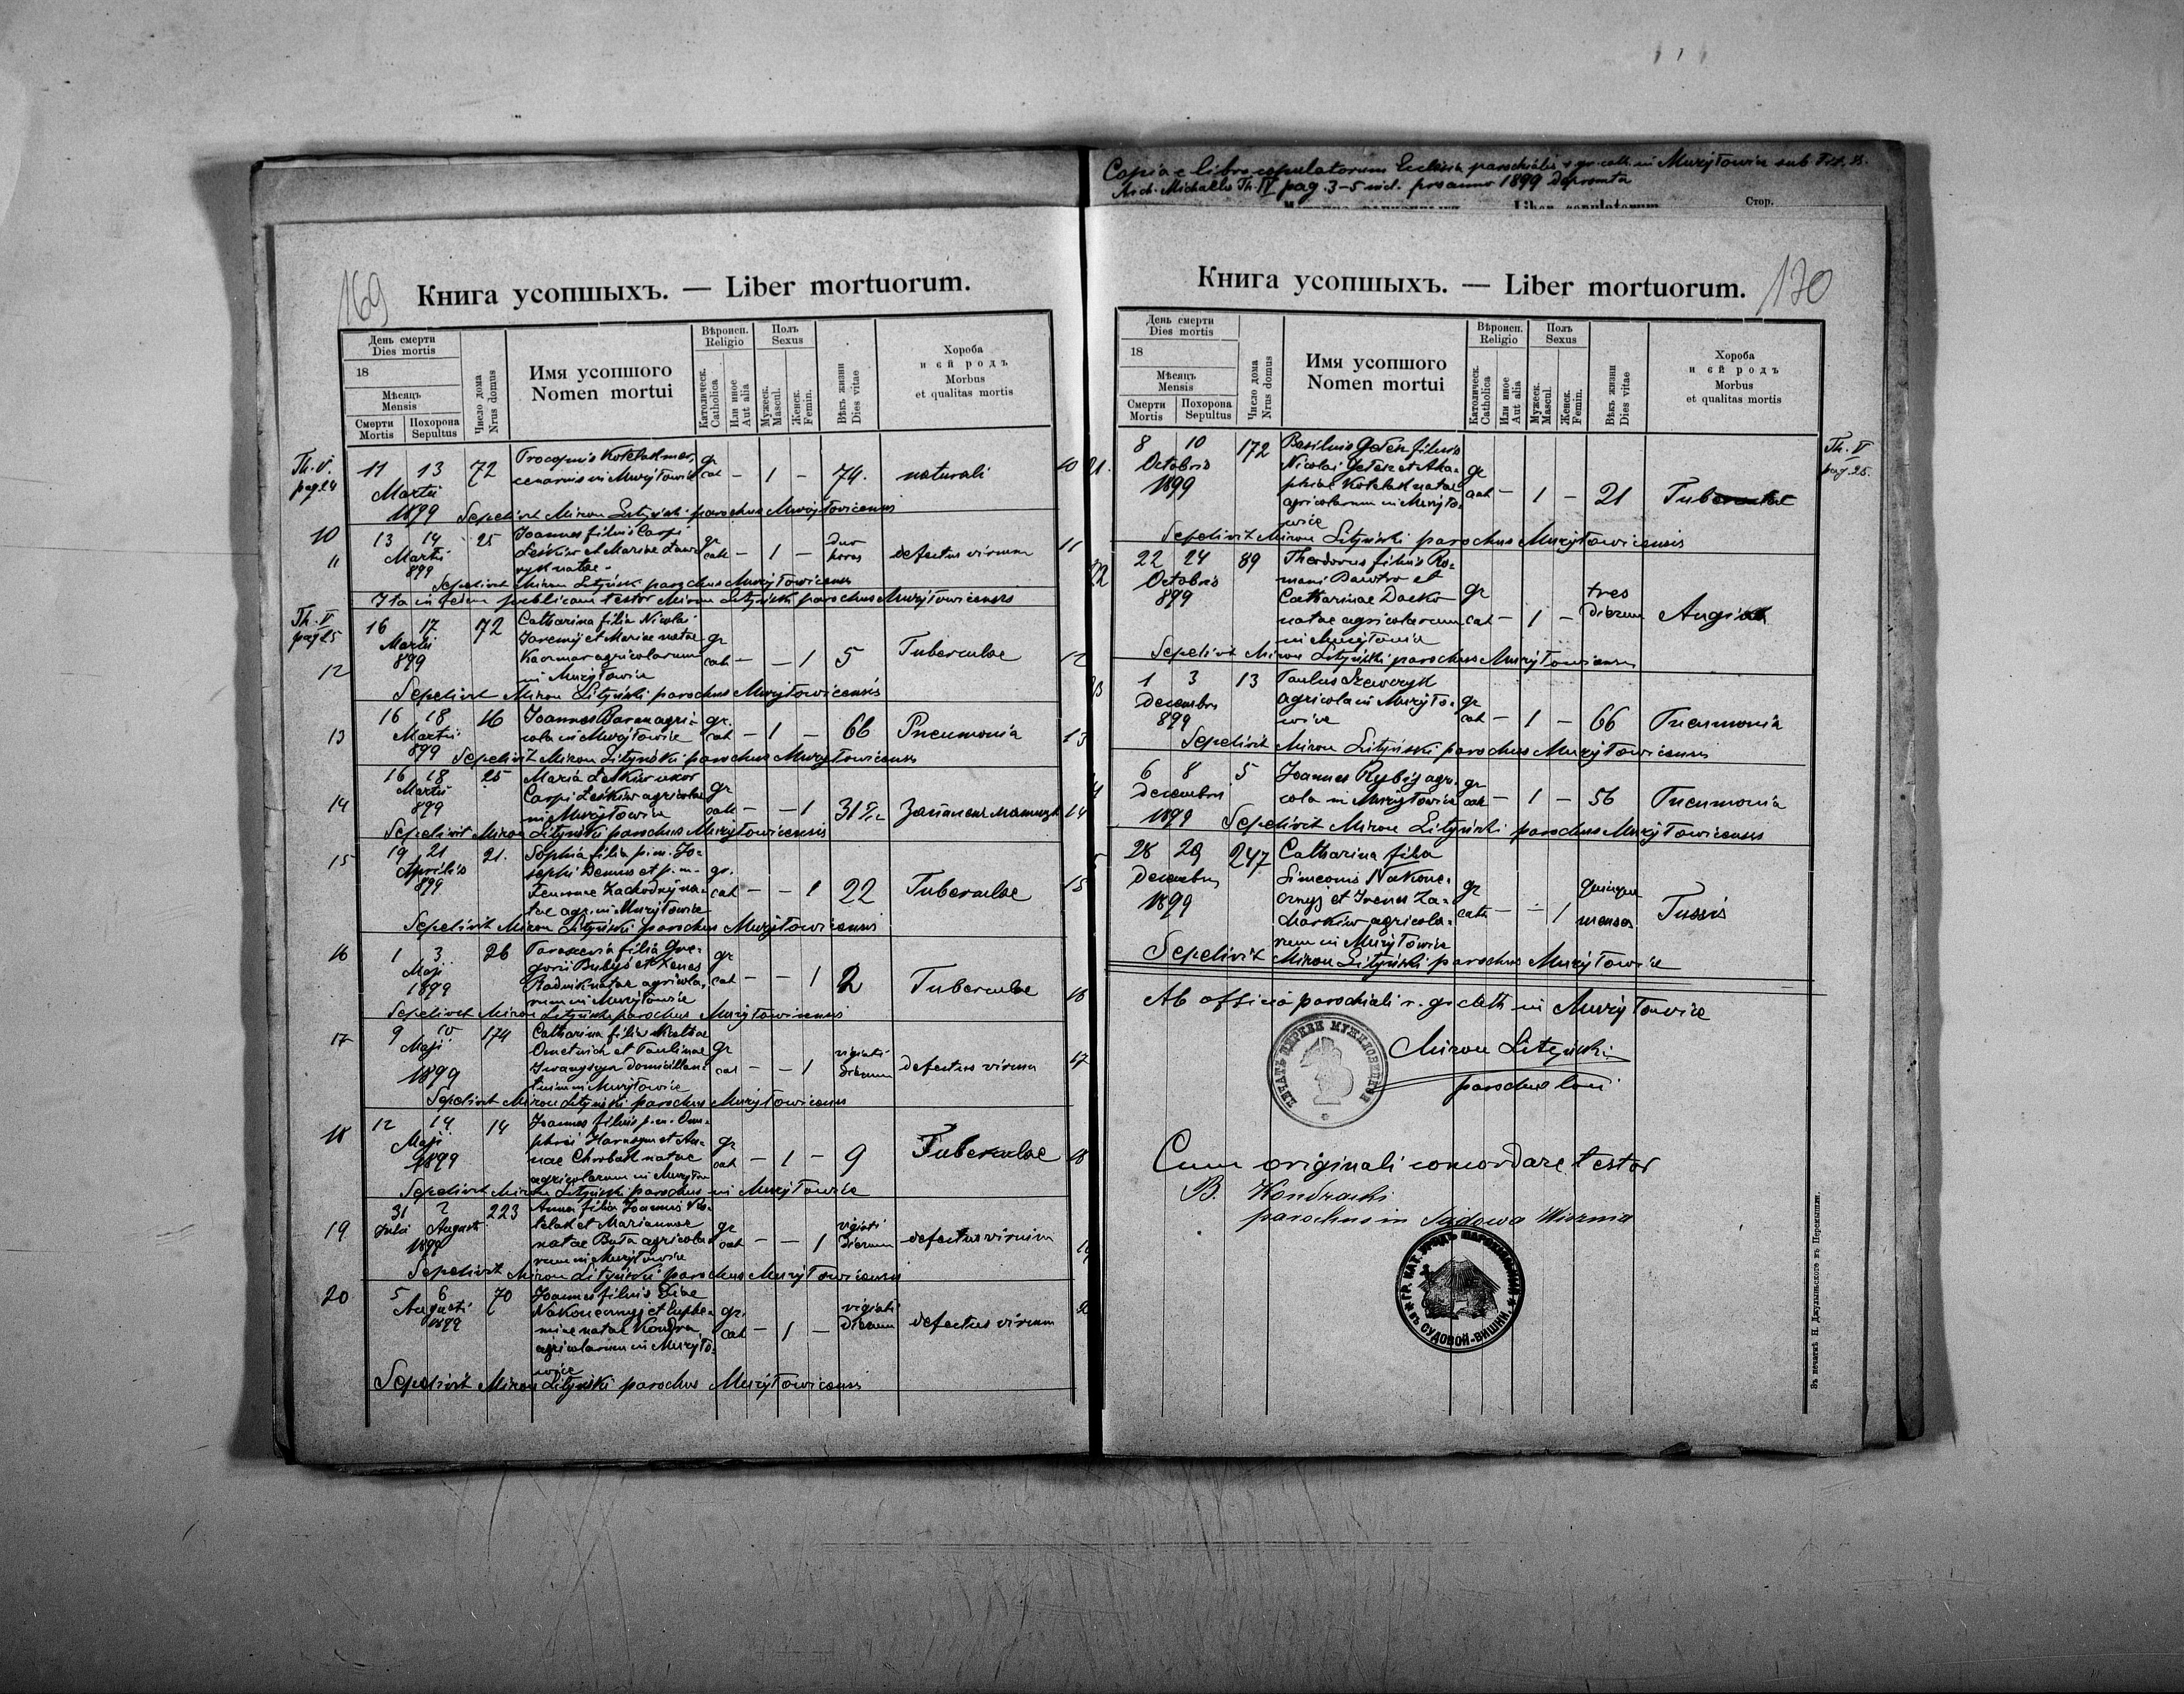 Copia e libro copulatorum Ecclesiae parochialis r. gr. cath. in Mużyłowice sub Tit. S.
Arch. Michaelis Th. IV pag. 3-5 incl. pro anno 1899 depromta
Liber copulatorum
Стор.
169
Книга усопшыхъ. — Liber mortuorum.
День смерти
Dies mortis
18
Мѣсяцъ
Mensis
Смерти
Mortis
Похорона
Sepultus
Число дома
Nrus domus
Имя усопшого
Nomen mortui
Вѣроисп.
Religio
Католическ.
Catholica
Или иное
Aut alia
Полъ
Sexus
Мужеск.
Mascul.
Женск.
Femin.
Вѣкъ жизни
Dies vitae
Хороба
и єй родъ
Morbus
et qualitas mortis
Th. V.
pag 24
10
11 13 72 Procopius Kotelak mer-
cenarius in Mużyłowice gr cat — 1 — 74. naturali
Martii
1899 Sepelivit Miron Lityński parochus Mużyłovicensis
11
13 14 25 Joannes filius Carpi
Martii Leśkiw et Mariae Ław-
899 ryk natae gr cath — 1 — duo horas defectus virium
Sepelivit Miron Lityński parochus Mużyłowicensis
Ita in fidem publicam testor Miron Lityński parochus Mużyłowicensis
Th. V
pag 25
12
16 17 72 Catharina filia Nicolai
Martii Jaremij et Mariae natae
899 Kaczmar agricolarum
in Mużyłowice gr cath — — 1 5 Tuberculae
Sepelivit Miron Lityński parochus Mużyłowicensis
13
16 18 16 Joannes Baran agri-
Martii cola in Mużyłowice gr. cat — 1 — 66 Pneumonia
899 Sepelivit Miron Lityński parochus Mużyłowicensis
14
16 18 25 Maria Leśkiw uxor
Martii Carpi Leśkiw agricolae
899 in Mużyłowice gr cath — — 1 31
Sepelivit Miron Lityński parochus Mużyłowicensis
15
19 21 21. Sophia filia p.m. Jo-
Aprilis sephi Demus et p.m.
899 Zachodnÿ na-
tae agr. in Mużyłowice gr. cat — — 1 22 Tuberculae
Sepelivit Miron Lityński parochus Mużyłowicensis
16
1 3 26 Parascevia filia Gre-
Maji gorii Bubyś et Xenes
1899 Radnik natae agricola-
rum in Mużyłowice gr cat — — 1 2 Tuberculae
Sepelivit Miron Lityński parochus Mużyłowicensis
17
9 10 174 Catharina filia
Maji et Paulinae
1899 Iwanyszyn domicilian-
tium in Mużyłowice gr cat — — 1 viginti dierum defectus virium
Sepelivit Miron Lityński parochus Mużyłowicensis
18
12 14 14 Joannes filius p.m. Onu-
Maji phrii Harasym et An-
1899 nae Chrobak natae
agricolarum in Mużyłow gr cat — 1 — 9 Tuberculae
Sepelivit Miron Lityński parochus in Mużyłowice
19
31 2 223 Anna filia Joannis Ko-
Julii Augusti telak et Mariannae
1899 natae Buła agricola-
rum in Mużyłowice gr cat — — 1 viginti dierum defectus virium
Sepelivit Miron Lityński parochus Mużyłowicensis
20
5 6 70 Joannes filius Liae
Augusti Nakonecznyj et Euphe-
1899 miae natae Kondra
agricolarum in Mużyło-
wice gr. cat — 1 — viginti dierum defectus virium
Sepelivit Miron Lityński parochus Mużyłowicensis
170
Книга усопшыхъ. — Liber mortuorum.
День смерти
Dies mortis
18
Мѣсяцъ
Mensis
Смерти
Mortis
Похорона
Sepultus
Число дома
Nrus domus
Имя усопшого
Nomen mortui
Вѣроисп.
Religio
Католическ.
Catholica
Или иное
Aut alia
Полъ
Sexus
Мужеск.
Mascul.
Женск.
Femin.
Вѣкъ жизни
Dies vitae
Хороба
и єй родъ
Morbus
et qualitas mortis
Th. V
pag. 25.
21.
8 10 172 Basilius Gołek filius
Octobris Nicolai Gołek et Aha-
1899 phiae Kotelak natae
agricolarum in Mużyło-
wice gr cat — 1 — 21 Tuberculae
Sepelivit Miron Lityński parochus Mużyłowicensis
22
22 24 89 Theodorus filius Ro-
Octobris mani et
899 Catharinae Dacko
natae agricolarum
in Mużyłowice gr cat — 1 — tres dierum Angina
Sepelivit Miron Lityński parochus Mużyłowicensis
23
1 3 13 Paulus Szewczyk
decembris agricola in Mużyło-
899 wice gr cat — 1 — 66 Pneumonia
Sepelivit Miron Lityński parochus Mużyłowicensis
6 8 5 Joannes Rybij agri-
decembris cola in Mużyłowice gr cat — 1 — 56 Pneumonia
1899 Sepelivit Miron Lityński parochus Mużyłowicensis
28 29 247 Catharina filia
decembris Simeonis Nakone-
1899 cznyj et Irenes Za-
charkiw agricola-
rum in Mużyłowice gr cath — — 1 quinque menses Tussis
Sepelivit Miron Lityński parochus Mużyłowice
Ab officio parochiali r. gr. cath in Mużyłowice
Miron Lityński
parochus loci
ПЕЧАТЬ ЦЕРКВИ МУЖИЛОВИЦКОЯ
Cum originali concordare testor
B. Kondracki
parochus in Sądowa Wisznia
ГР. КАТ. УРЯДЪ ПАРОХІЯЛЬНЫЙ
въ СУДОВОЙ-ВИШНИ
Зъ печатнѣ Н. Джулыньского въ Перемышли.